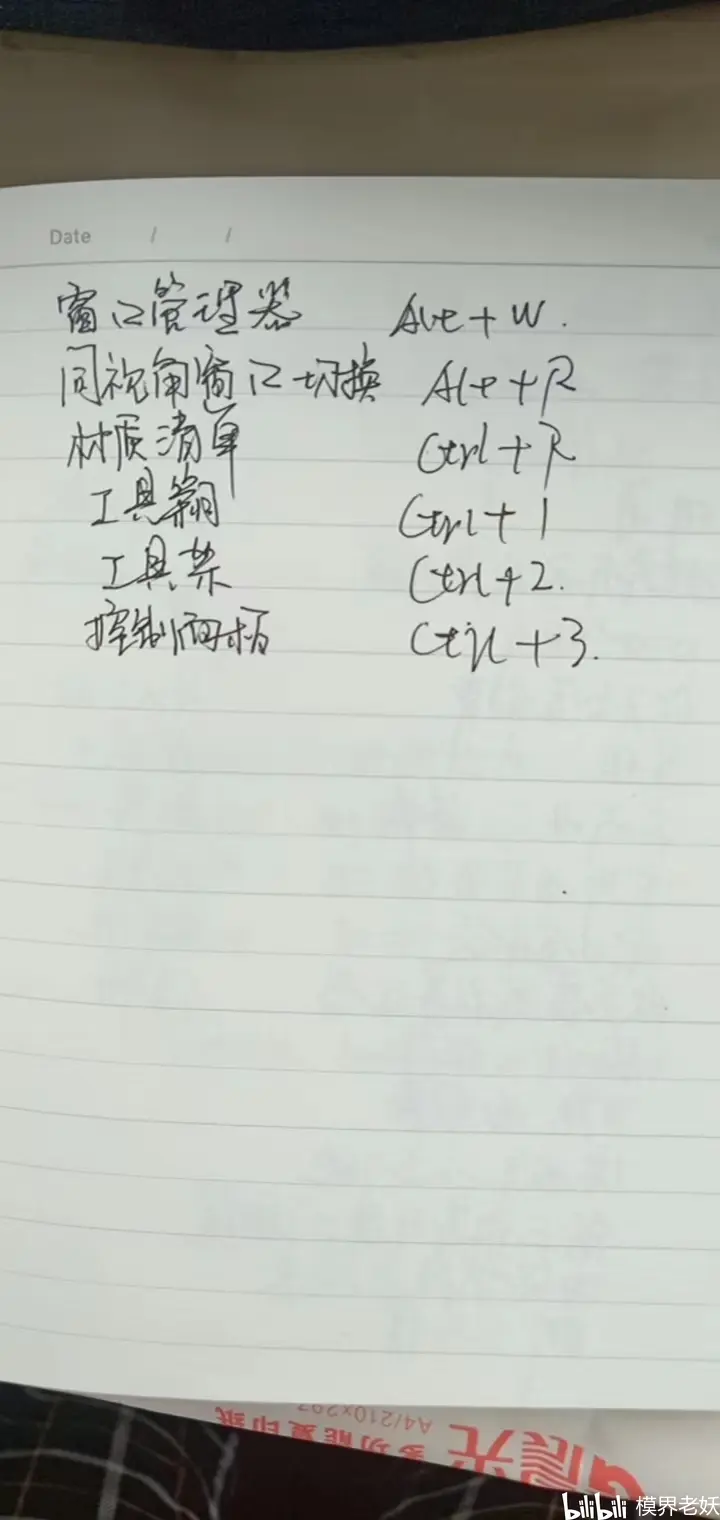 Date / /
窗口管理器 Alt + W.
同视角窗口切换 Alt + R
材质清单 Ctrl + R
工具箱 Ctrl + 1
工具 Ctrl + 2.
控制面板 Ctrl + 3.
晨光 A4/210x297
多功能复印纸
bilibili 模界老妖